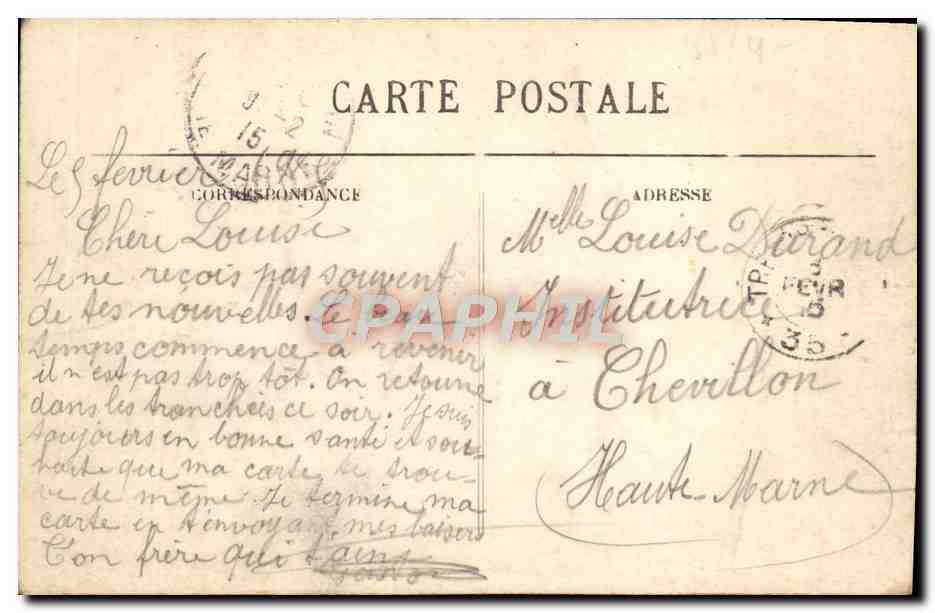 CARTE POSTALE
9 2
15
MARNE
CORRESPONDANCE
Le 5 fevrier
Chère Louise
Je ne reçois pas souvent
de tes nouvelles. Le
temps commence à revenir
il n'est pas trop tôt. On retourne
dans les tranchées ce soir. Je suis
toujours en bonne santé et sou-
haite que ma carte te trou-
ve de même. Je termine ma
carte en t'envoyant mes baisers
Ton frère qui t'aime
ADRESSE
Melle Louise Durand
Institutrice
à Chevillon
Haute-Marne
TRESOR
FEVR
35
CPAPHIL